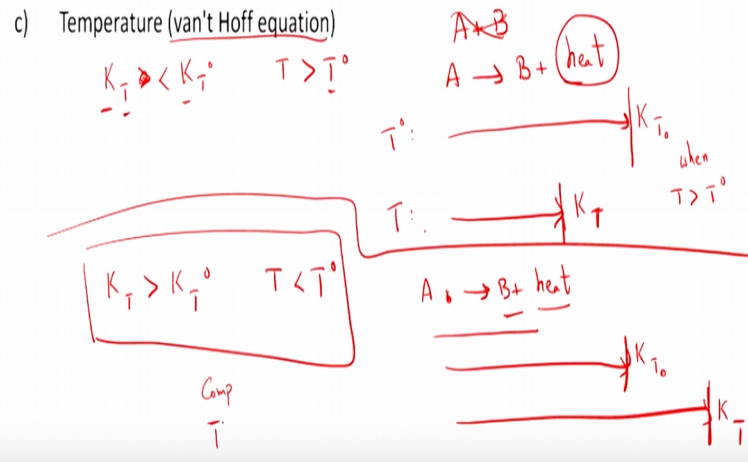 c) Temperature (van't Hoff equation)
A+B
K_T < K_T° T > T°
A → B + heat
T°: K_T₀
when
T > T°
T: K_T
K_T > K_T° T < T°
A → B + heat
K_T₀
Comp
T
K_T